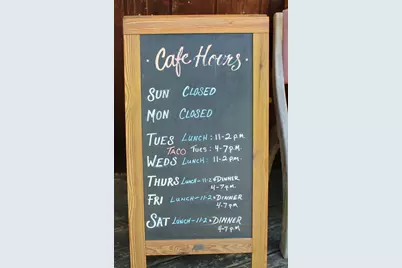 · Cafe Hours ·
SUN CLOSED
MON CLOSED
TUES LUNCH: 11-2 p.m.
TACO TUES: 4-7 p.m.
WEDS LUNCH: 11-2 p.m.
THURS LUNCH-11-2 + DINNER
4-7 p.m.
FRI LUNCH-11-2 + DINNER
4-7 p.m.
SAT LUNCH-11-2 + DINNER
4-7 p.m.